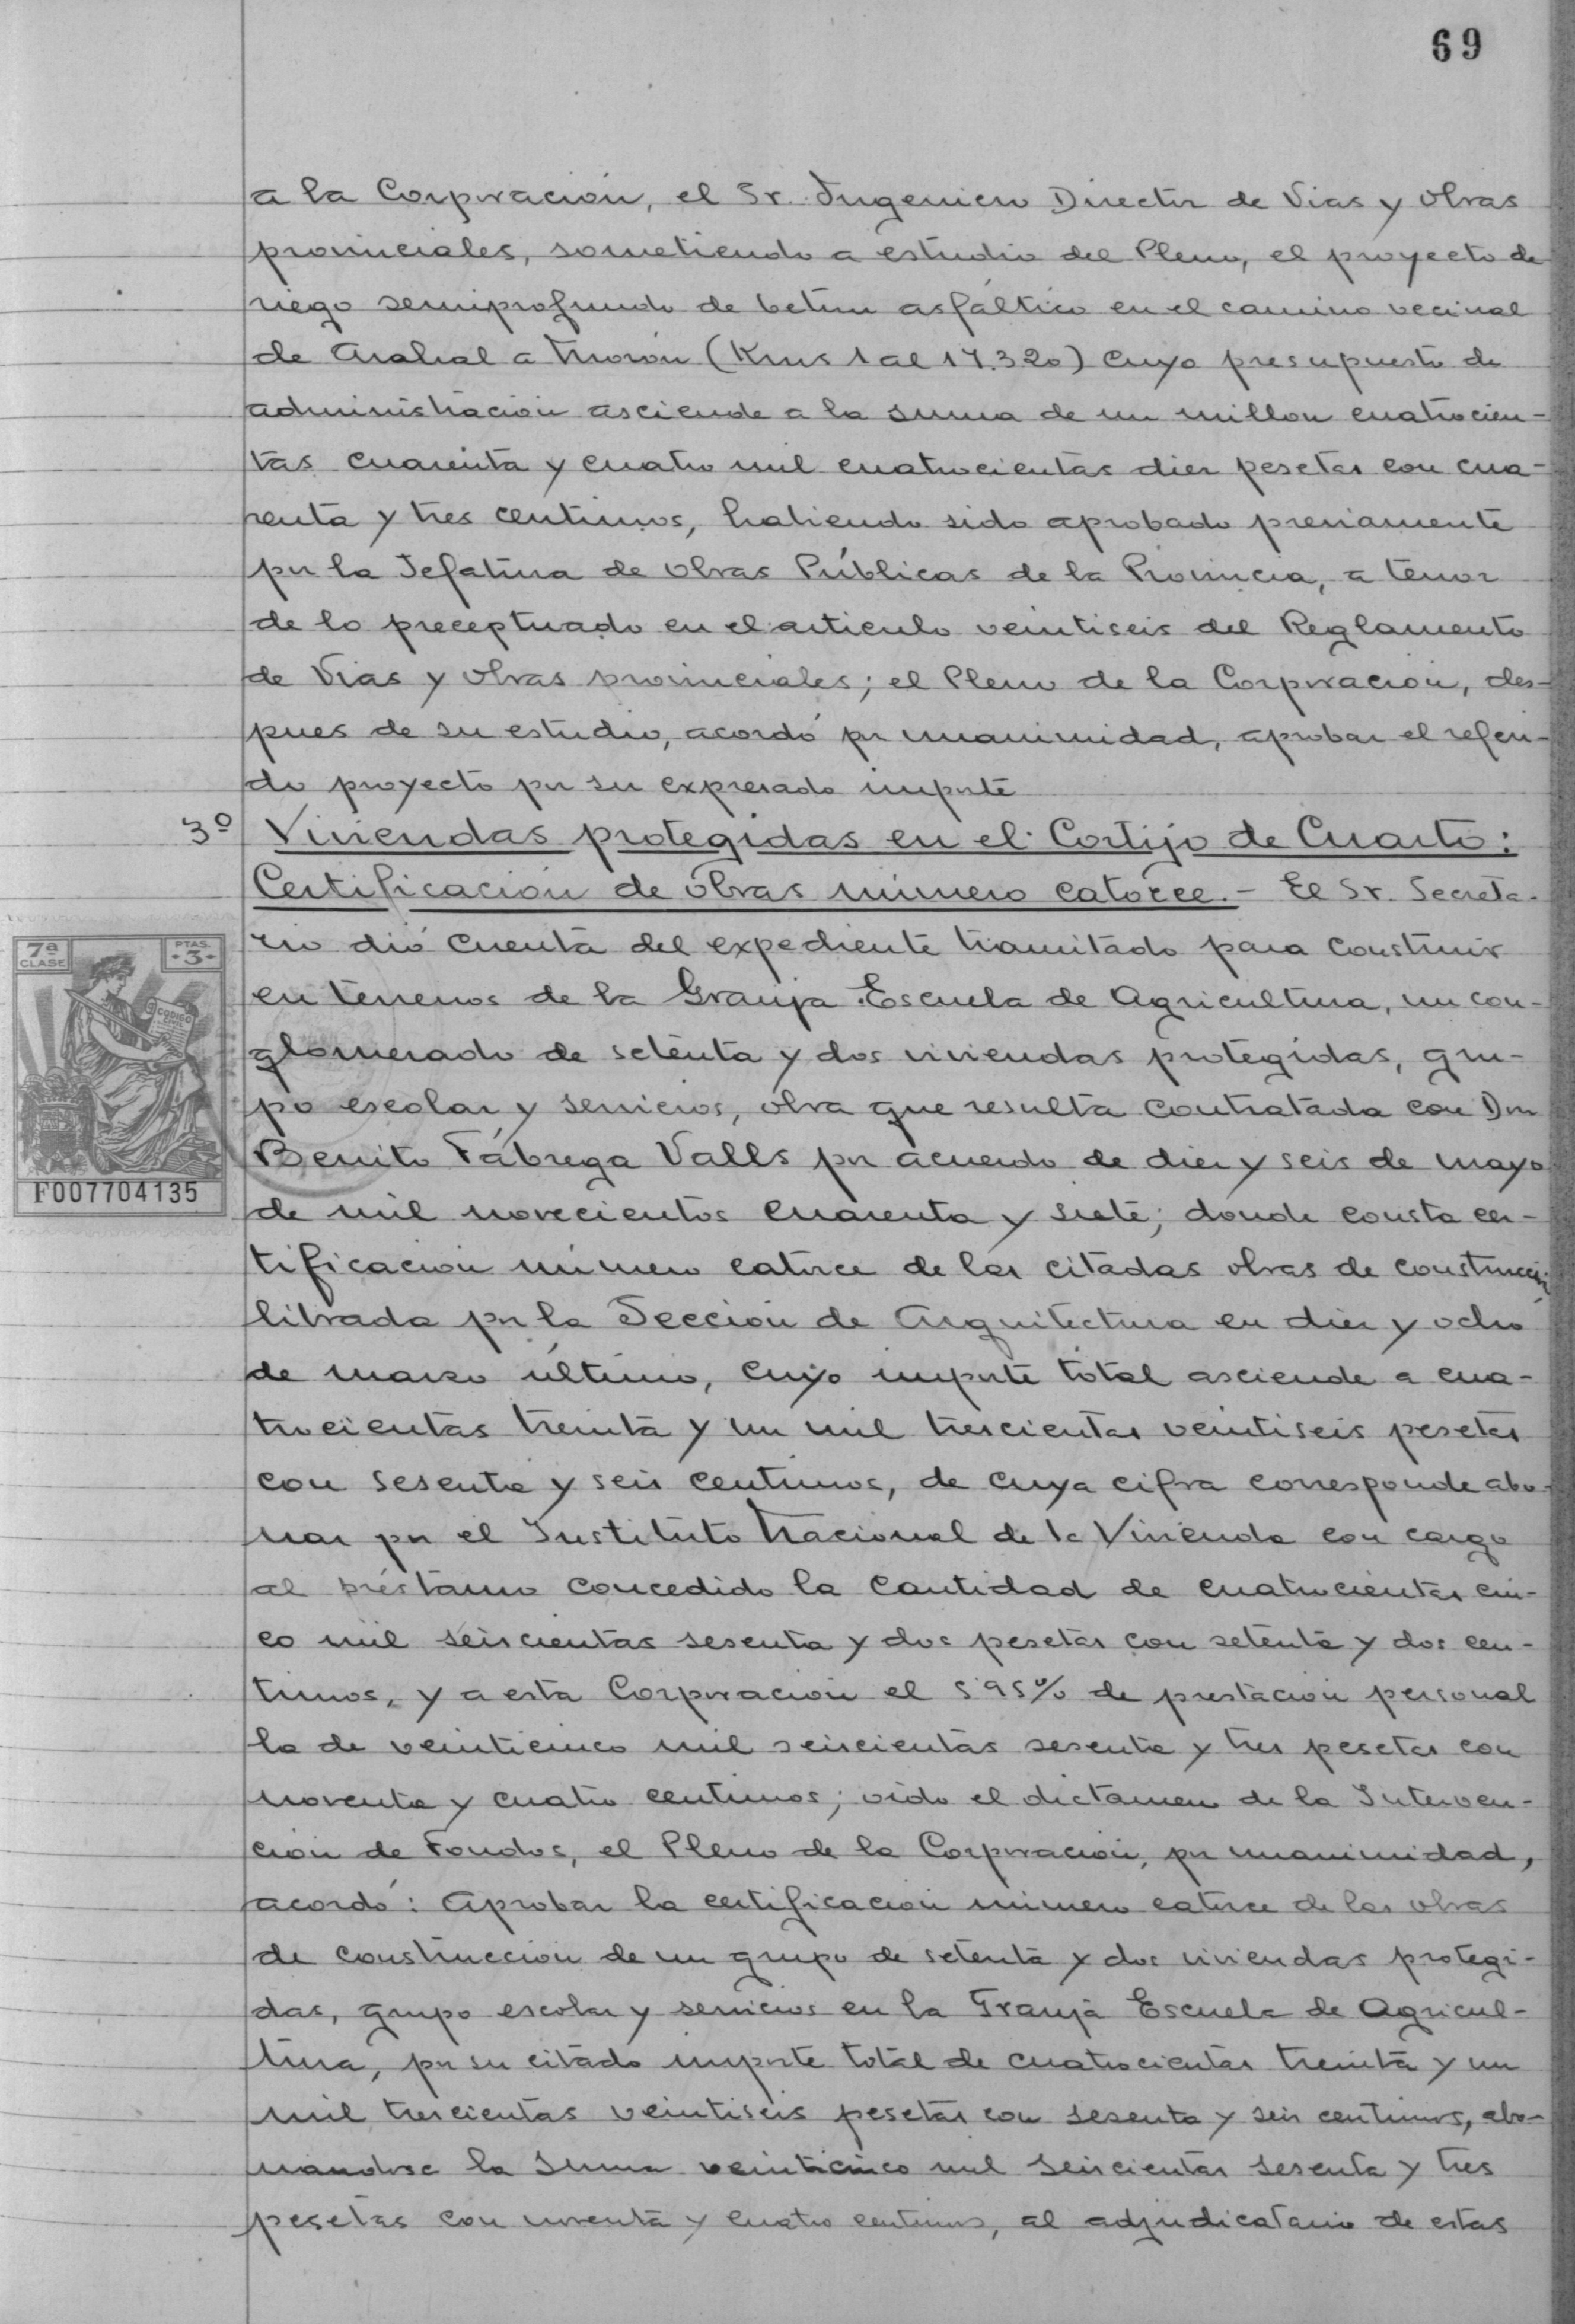 69
a la Corporación, el Sr. Ingeniero Director de Vias y Obras
provinciales, sometiendo a estudio del Pleno, el proyecto de
riego semiprofundo de betun asfáltico en el camino vecinal
de Arahal a Morón (Kms 1 al 17.320) cuyo presupuesto de
administración asciende a la suma de un millon cuatrocien-
tas cuarenta y cuatro mil cuatrocientas diez pesetas con cua-
renta y tres centimos, habiendo sido aprobado previamente
por la Jefatura de Obras Públicas de la Provincia, a tenor
de lo preceptuado en el articulo veintiseis del Reglamento
de Vias y Obras provinciales; el Pleno de la Corporación, des-
pues de su estudio, acordó por unanimidad, aprobar el referi-
do proyecto por su expresado importe
3º Viviendas protegidas en el Cortijo de Cuarto:
Certificación de obras número catorce.- El Sr. Secreta-
rio dió cuenta del expediente tramitado para construir
en terrenos de la Granja Escuela de Agricultura, un con-
glomerado de setenta y dos viviendas protegidas, gru-
po escolar y servicios, obra que resulta contratada con Don
Benito Fábrega Valls por acuerdo de diez y seis de mayo
de mil novecientos cuarenta y siete; donde consta cer-
tificación número catorce de las citadas obras de construcción
librada por la Sección de Arquitectura en diez y ocho
de marzo último, cuyo importe total asciende a cua-
trocientas treinta y un mil trescientas veintiseis pesetas
con sesenta y seis centimos, de cuya cifra corresponde abo-
nar por el Instituto Nacional de la Vivienda con cargo
al préstamo concedido la cantidad de cuatrocientas cin-
co mil seiscientas sesenta y dos pesetas con setenta y dos cen-
timos, y a esta Corporación el 5'95% de prestación personal
la de veinticinco mil seiscientas sesenta y tres pesetas con
noventa y cuatro centimos; oido el dictamen de la Interven-
ción de Fondos, el Pleno de la Corporación, por unanimidad,
acordó: Aprobar la certificación número catorce de las obras
de construcción de un grupo de setenta y dos viviendas protegi-
das, grupo escolar y servicios en la Granja Escuela de Agricul-
tura, por su citado importe total de cuatrocientas treinta y un
mil trescientas veintiseis pesetas con sesenta y seis centimos, abo-
nandose la suma veinticinco mil seiscientas sesenta y tres
pesetas con noventa y cuatro centimos, al adjudicatario de estas
7ª CLASE
PTAS. -3-
CODIGO CIVIL
F007704135